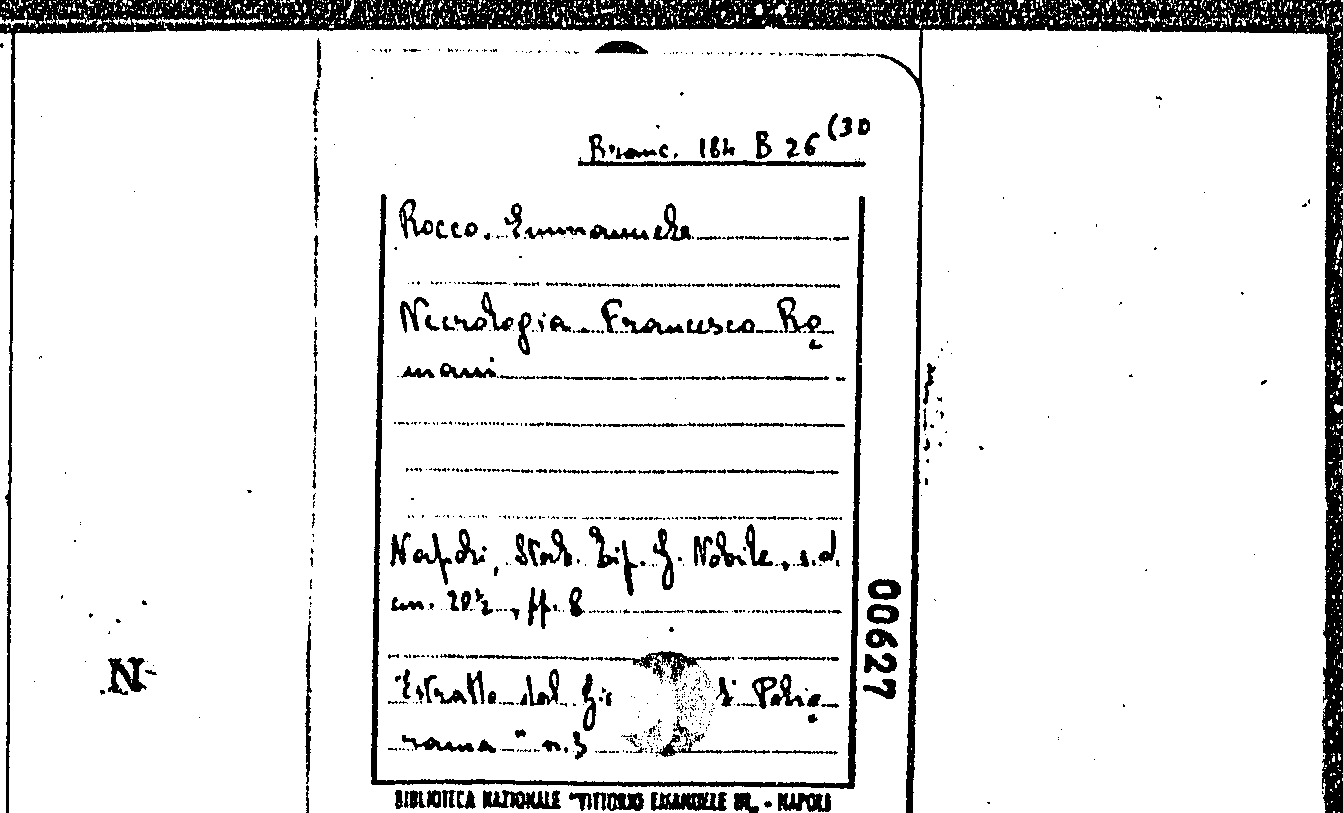 Branc. 184 B 26 (30
Rocco, Emmanuele
Necrologia. Francesco Ro
mani
Napoli, Stab. Tip. G. Nobile, s.d.
cm. 20½, pp. 8
Estratto dal Polio
rama" n. 3
00627
N
BIBLIOTECA NAZIONALE "VITTORIO EMANUELE III„ - NAPOLI